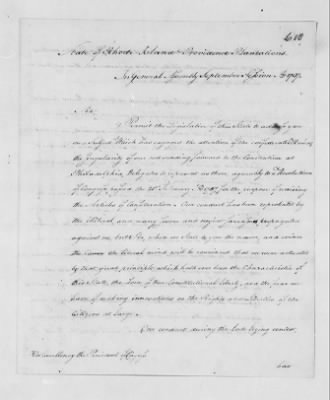 State of Rhode Island & Providence Plantations.
In General Assembly September Session AD 1787.
Sir
Permit the Legislature of this State to address you
on a Subject Which has engaged the attention of the confederated Union
the singularity of our not sending forward to the Convention at
Philadelphia, Delegates to represent us there, agreeably to a Resolution
of Congress passed the 21st February AD 1787 for the purpose of revising
the Articles of Confederation. Our conduct has been reprobated by
the illiberal, and many severe and unjust sarcasms propagated
against us, but Sir, when we state to you the reason, and explain
the cause the liberal mind will be convinced that we were actuated
by that great principle which hath ever been the Characteristic of
this State, the Love of true Constitutional liberty, and the fear we
have of making innovations on the Rights and Liberties of the
Citizens at large.
Our conduct during the late trying contest,
His Excellency the President of Congress
has